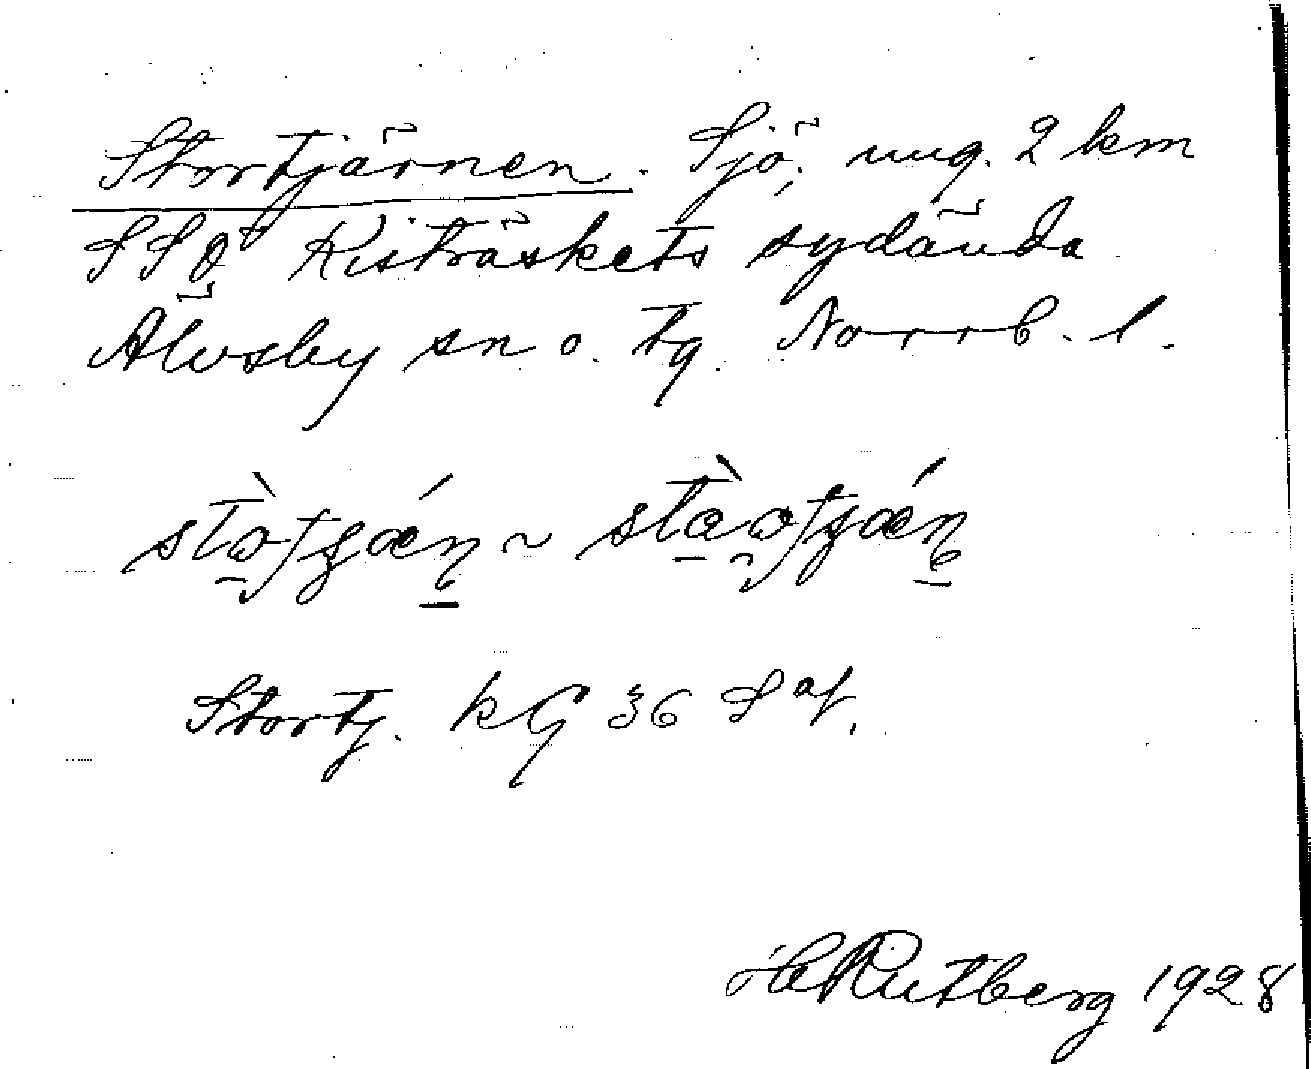 Stortjärnen. Sjö, ung. 2 km
SSO Kisträskets sydända
Älvsby sn o. tg. Norrb. l.
Stortj. kG 36 S of.
H Rutberg 1928